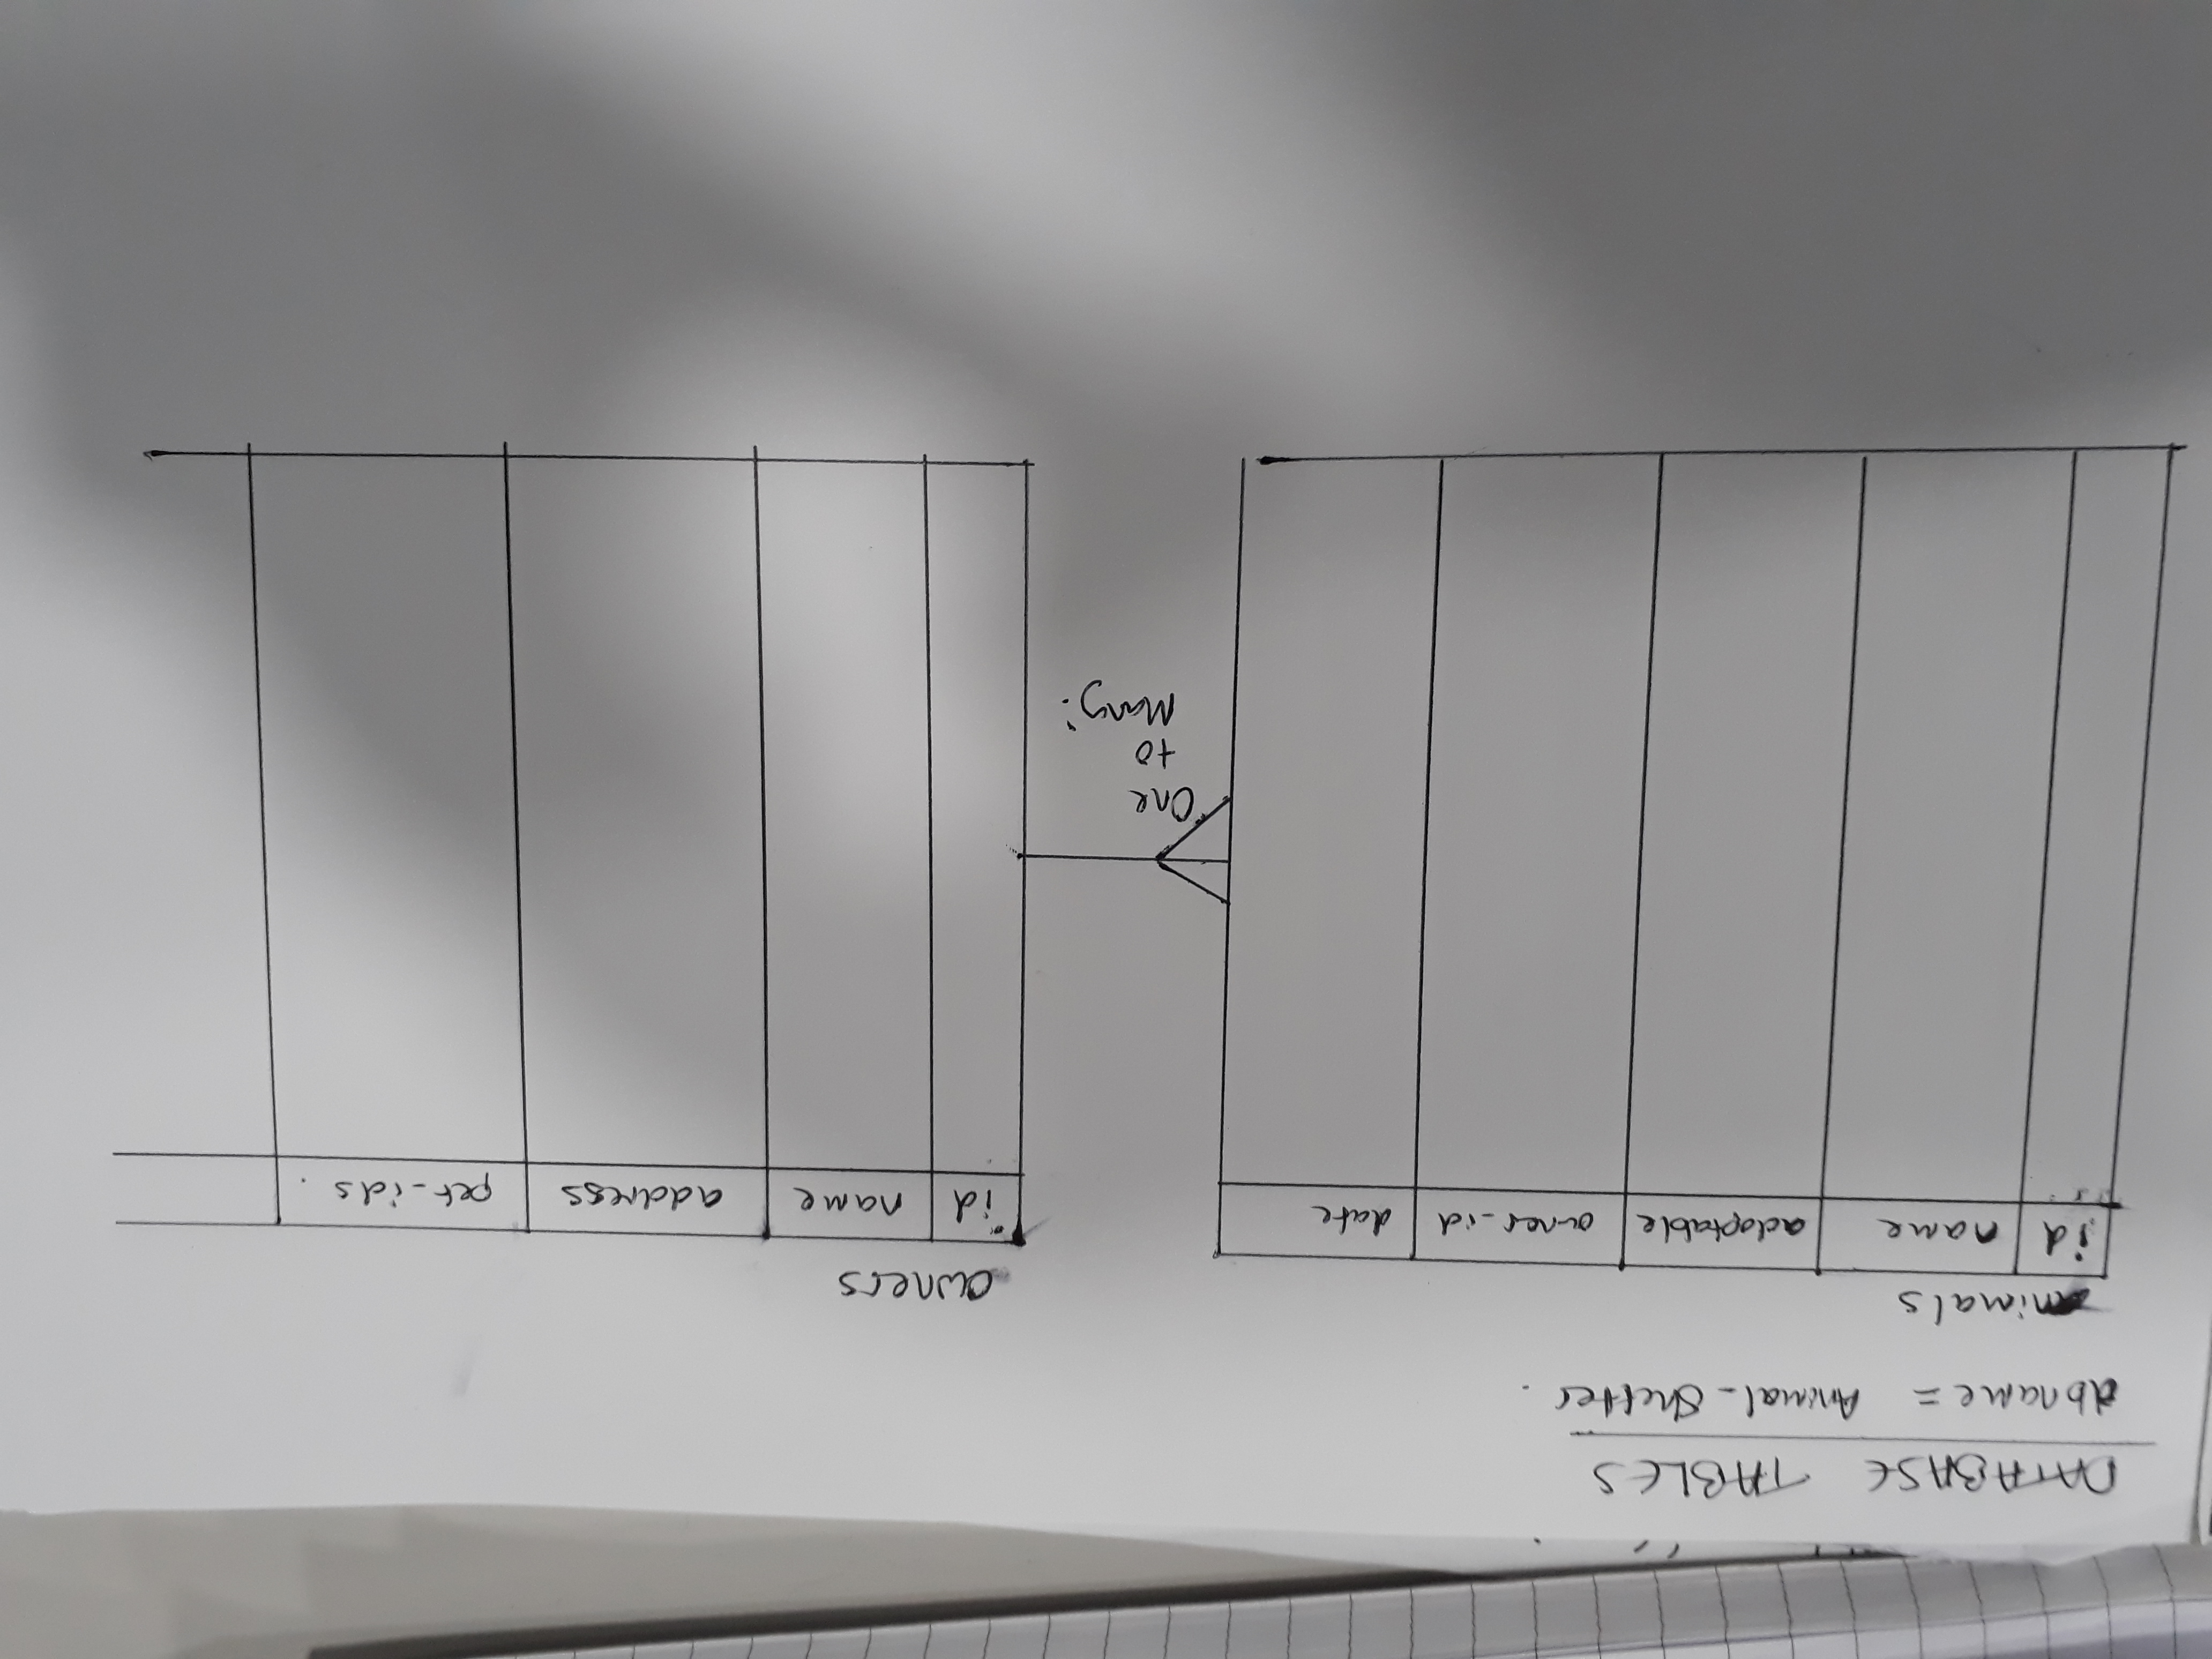 DATABASE TABLES
dbname = Animal_Shelter.
animals
id name adoptable owner_id date
owners
id name address pet_ids.
One
to
Many: